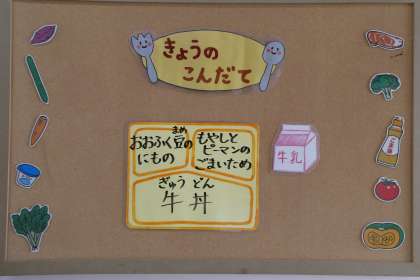 きょうの
こんだて
まめ
おおふく豆の
にもの
もやしと
ピーマンの
ごまいため
ぎゅう どん
牛 丼
牛乳